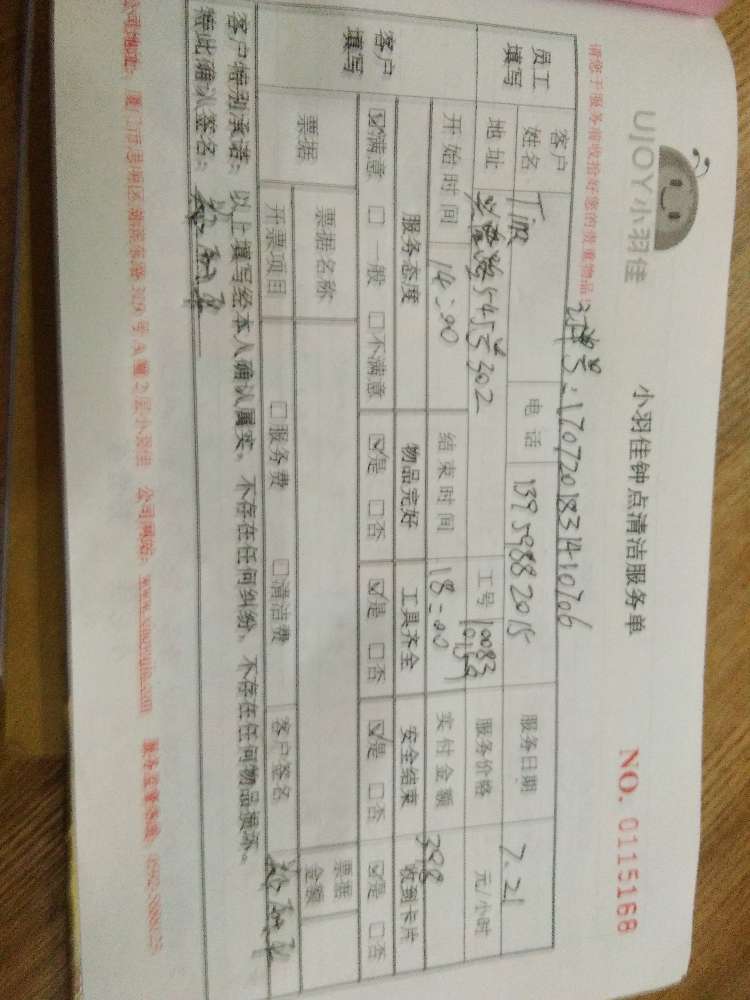 UJOY小羽佳
小羽佳钟点清洁服务单
NO. 0115168
请您于服务前收拾好您的贵重物品!
订单号:170720183141070b
员工填写 客户姓名 电话 13959882015 服务日期 7.21
地址 545号302 工号 10083 服务价格 元/小时
开始时间 14:00 结束时间 18:00 实付金额 398
客户填写 服务态度 物品完好 工具齐全 安全结束 收到卡片
☑满意 □一般 □不满意 ☑是 □否 ☑是 □否 ☑是 □否 ☑是 □否
票据 票据名称 票据金额
开票项目 □服务费 □清洁费 客户签名
客户特别承诺:以上填写经本人确认属实。不存在任何纠纷、不存在任何物品损坏。
特此确认签名:
公司地址: 厦门市思明区 309号A幢2层小羽佳 公司网站: www.xiaoyujia.com